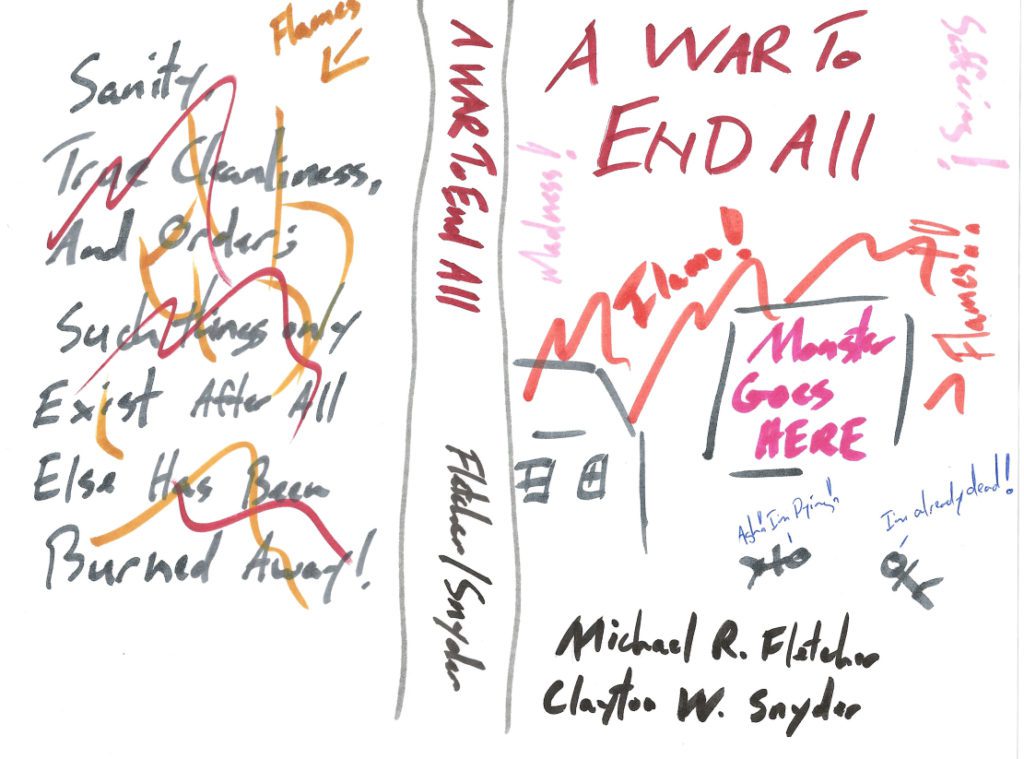 Flames
Sanity
True Cleanliness,
And Order;
Such things only
Exist After All
Else Has Been
Burned Away!
A WAR To End All
Fletcher/Snyder
A WAR To
END All
Madness!
Suffering!
Flame!
Flames
Monster
Goes
HERE
I'm Dying!!
I'm already dead!
Michael R. Fletcher
Clayton W. Snyder